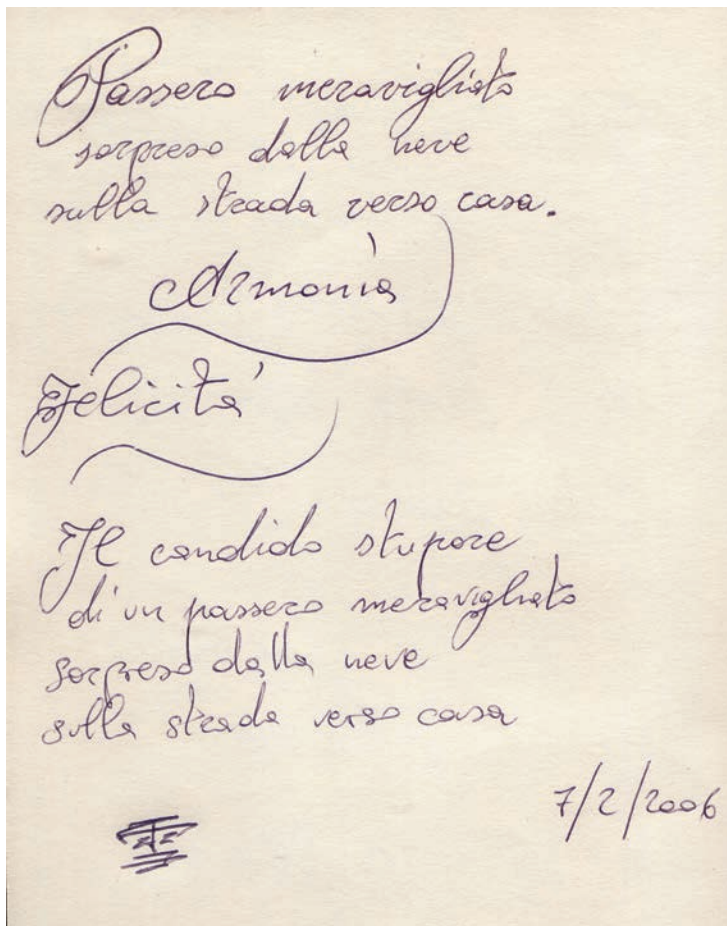 Passero meravigliato
sorpreso dalla neve
sulla strada verso casa.
Armonia
Felicità
Il candido stupore
di un passero meravigliato
sorpreso dalla neve
sulla strada verso casa
7/2/2006